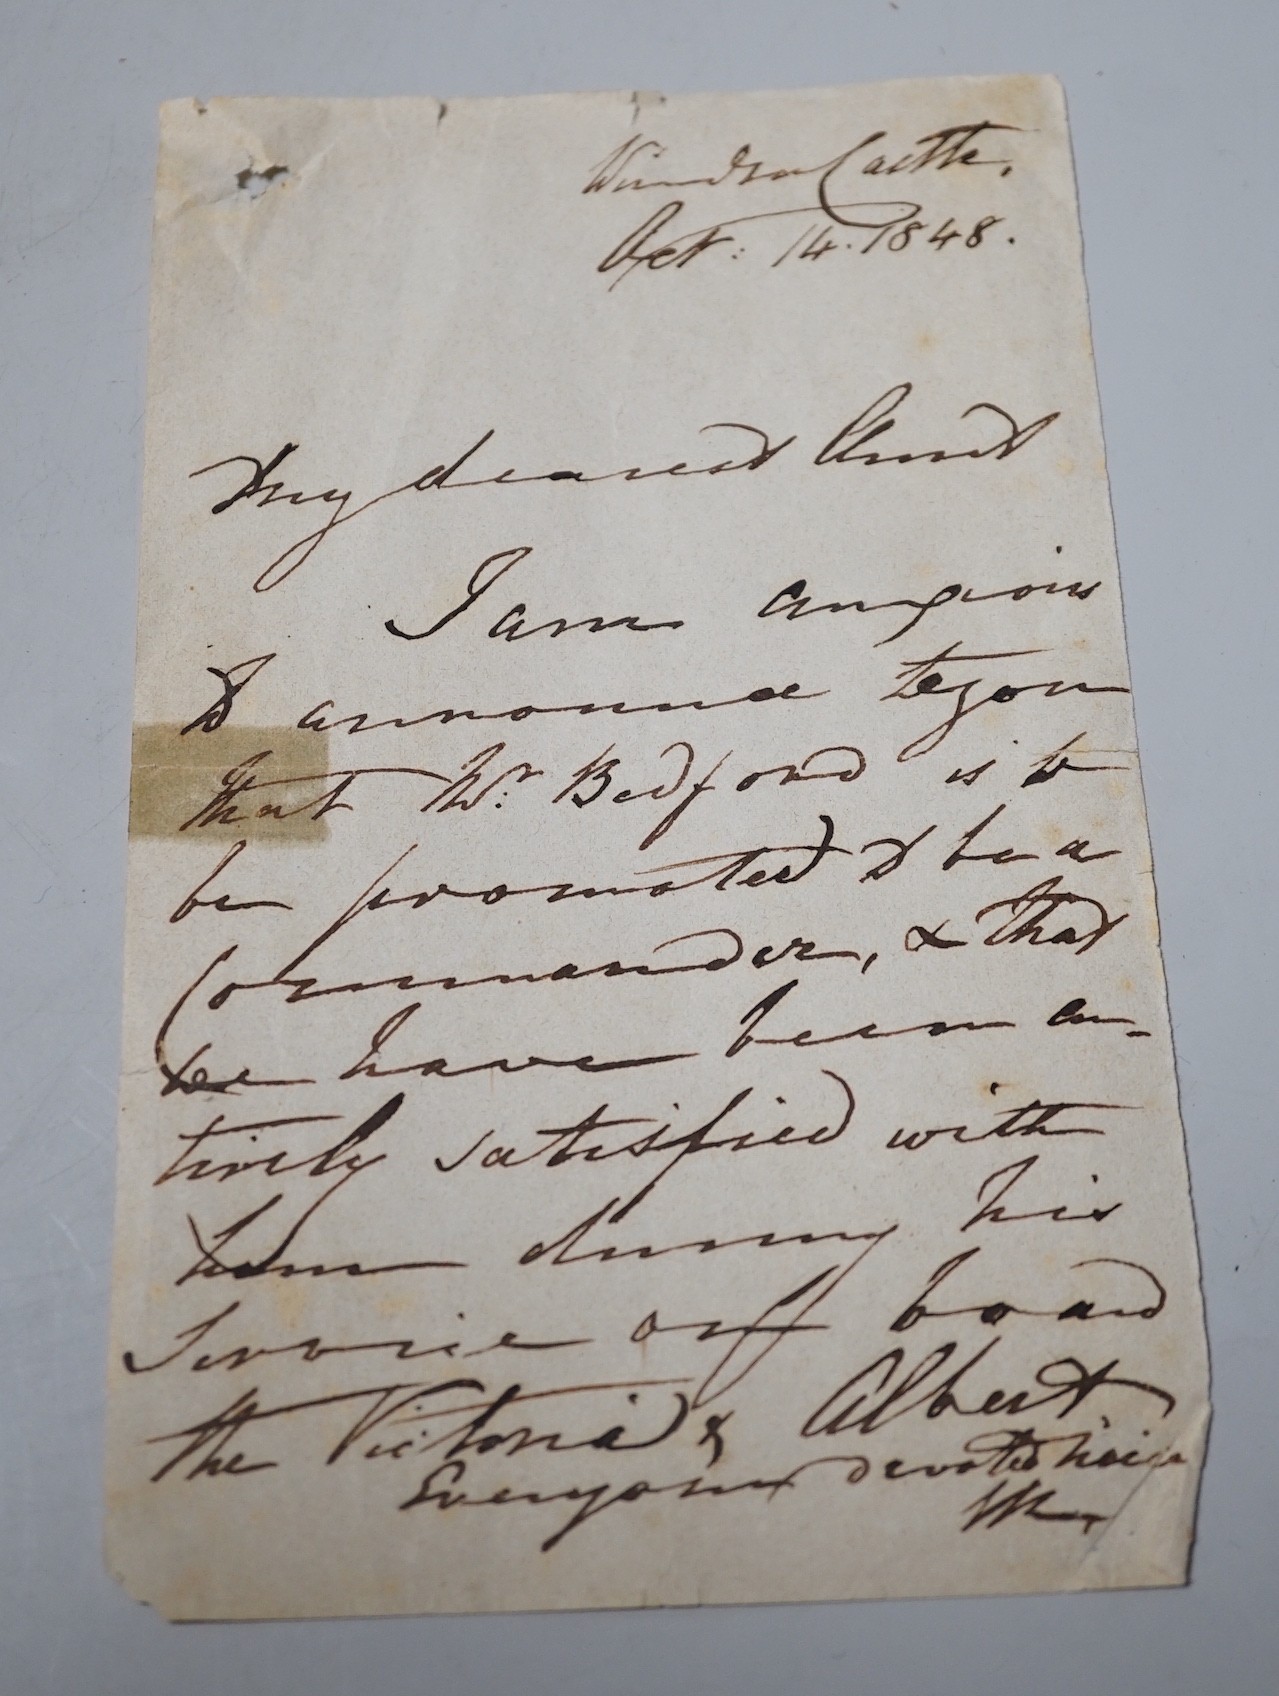 Windsor Castle,
Oct: 14. 1848.
My dearest Aunt
I am anxious
to announce to you
that Mr: Bedford is to
be promoted to be a
Commander, & that
we have been en-
tirely satisfied with
him during his
service on board
the Victoria & Albert
Ever your devoted Niece
VR.